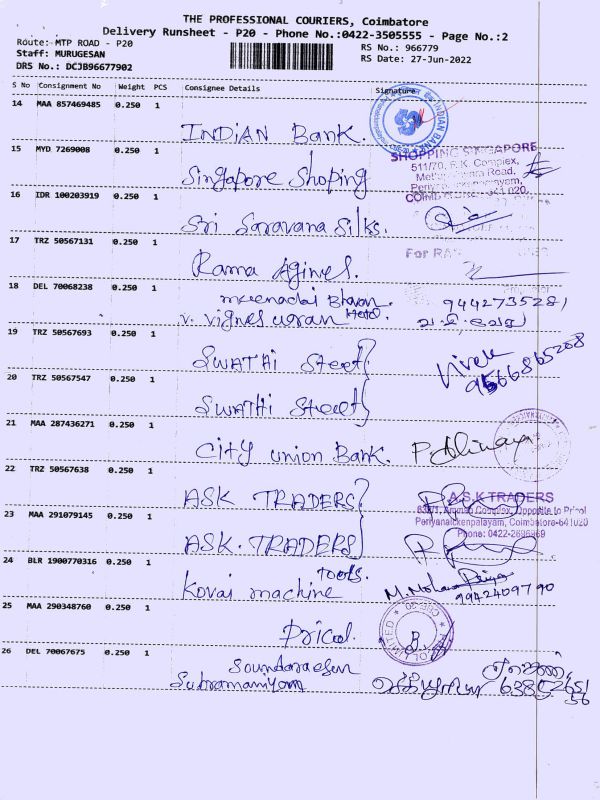 THE PROFESSIONAL COURIERS, Coimbatore
Delivery Runsheet - P20 - Phone No.:0422-3505555 - Page No.:2
Route: MTP ROAD - P20 RS No.: 966779
Staff: MURUGESAN RS Date: 27-Jun-2022
DRS No.: DCJB96677902
S No Consignment No Weight PCS Consignee Details Signature
14 MAA 857469485 0.250 1
INDIAN Bank.
INDIAN BANK
15 MYD 7269008 0.250 1
SHOPPING SINGAPORE
511/70, R.K. Complex,
Road,
Singapore Shoping
16 IDR 100203919 0.250 1
641 020.
Sri Saravana Silks.
17 TRZ 50567131 0.250 1
For
Rama Agines.
18 DEL 70068238 0.250 1
Bhavan Hotel. 9442735281
19 TRZ 50567693 0.250 1
SWATHI Steet Vivek
20 TRZ 50567547 0.250 1
SWATHI Street
21 MAA 287436271 0.250 1
City union Bank.
22 TRZ 50567638 0.250 1
ASK TRADERS
A.S.K TRADERS
Opposite to Pricol
23 MAA 291079145 0.250 1
Periyanaickenpalayam, Coimbatore-641020
Phone: 0422-2696869
ASK. TRADERS
24 BLR 1900770316 0.250 1
Kovai machine Tools.
9942409790
25 MAA 290348760 0.250 1
Pricol.
26 DEL 70067675 0.250 1
Subramaniyam